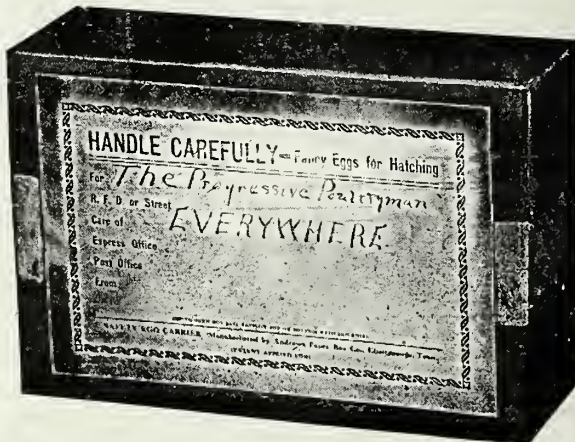 HANDLE CAREFULLY—Fancy Eggs for Hatching
For The Progressive Poultryman
R. F. D. or Street
Care of EVERYWHERE
Express Office
Post Office
From
SAFETY EGG CARRIER, Manufactured by Andrews Paper Box Co., Chattanooga, Tenn.
(PATENT APPLIED FOR)